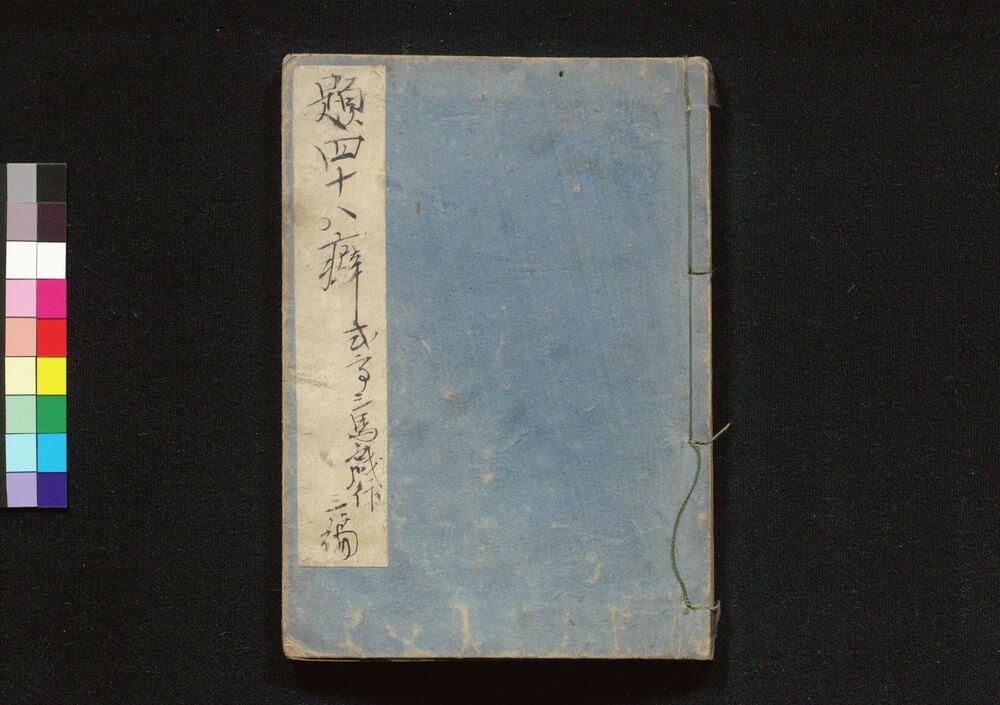 題四十八癖 式亭三馬戯作 三編